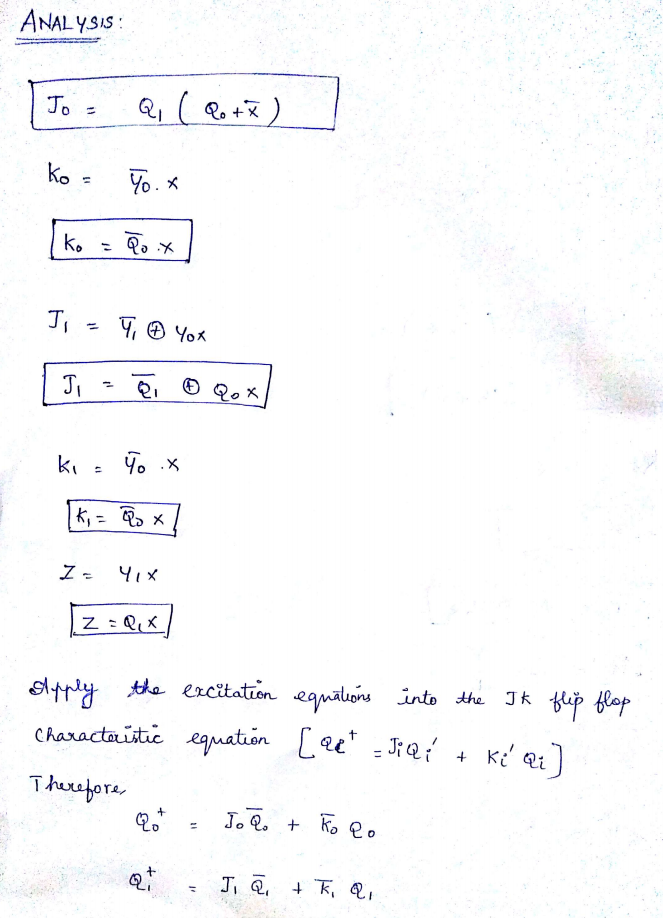 ANALYSIS:
J₀ = Q₁ ( Q₀ + x̄ )
K₀ = ȳ₀ . x
K₀ = Q̄₀ . x
J₁ = ȳ₁ ⊕ y₀x
J₁ = Q̄₁ ⊕ Q₀x
K₁ = ȳ₀ . x
K₁ = Q̄₀ x
Z = y₁x
Z = Q₁x
Apply the excitation equations into the JK flip flop
characteristic equation [Qi⁺ = JiQi' + Ki'Qi]
Therefore,
Q₀⁺ = J₀Q̄₀ + K̄₀ Q₀
Q₁⁺ = J₁ Q̄₁ + K̄₁ Q₁